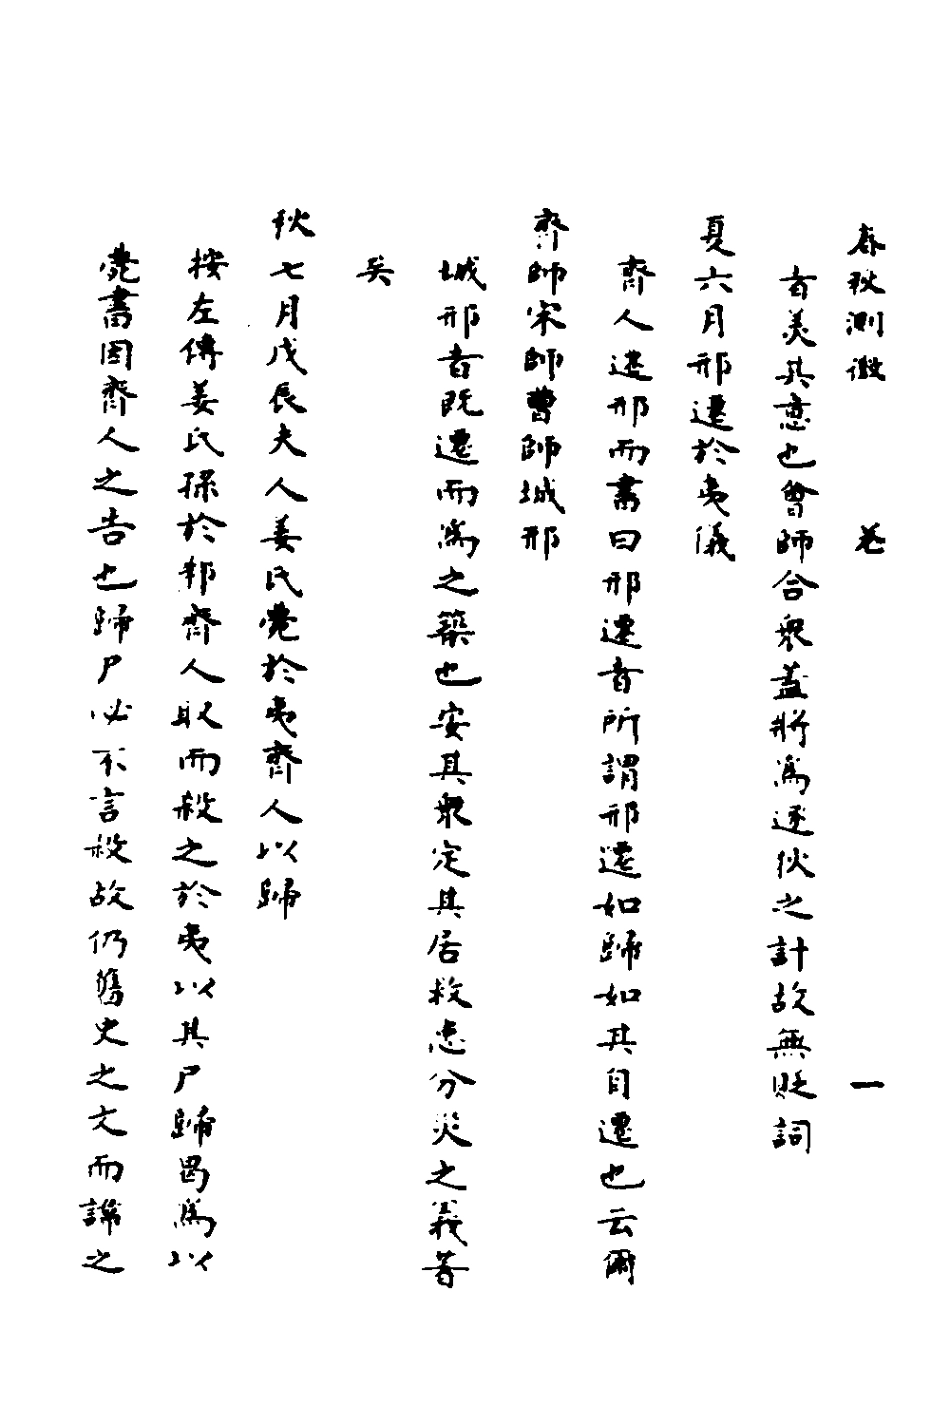 春秋測微 卷 一
者美其意也曾師合衆蓋將爲逐狄之計故無貶詞
夏六月邢遷於夷儀
齊人遷邢而書曰邢遷者所謂邢遷如歸如其自遷也云爾
齊師宋師曹師城邢
城邢者既遷而爲之築也安其衆定其居救患分災之義著
矣
秋七月戊辰夫人姜氏薨於夷齊人以歸
按左傳姜氏孫於邾齊人取而殺之於夷以其尸歸曷爲以
薨書因齊人之告也歸尸必不言殺故仍舊史之文而諱之